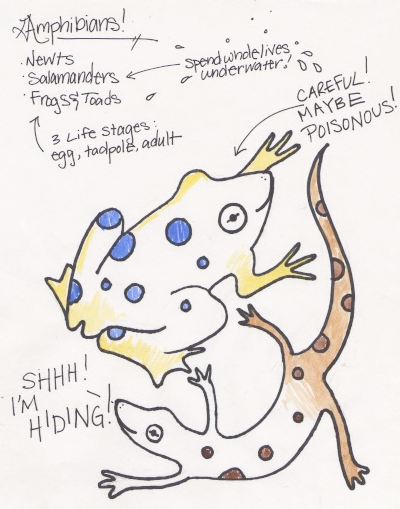 Amphibians!
· Newts
· Salamanders
· Frogs & Toads
spend whole lives
underwater!
3 Life Stages:
egg, tadpole, adult
CAREFUL!
MAYBE
POISONOUS!
SHHH!
I'M
HIDING!